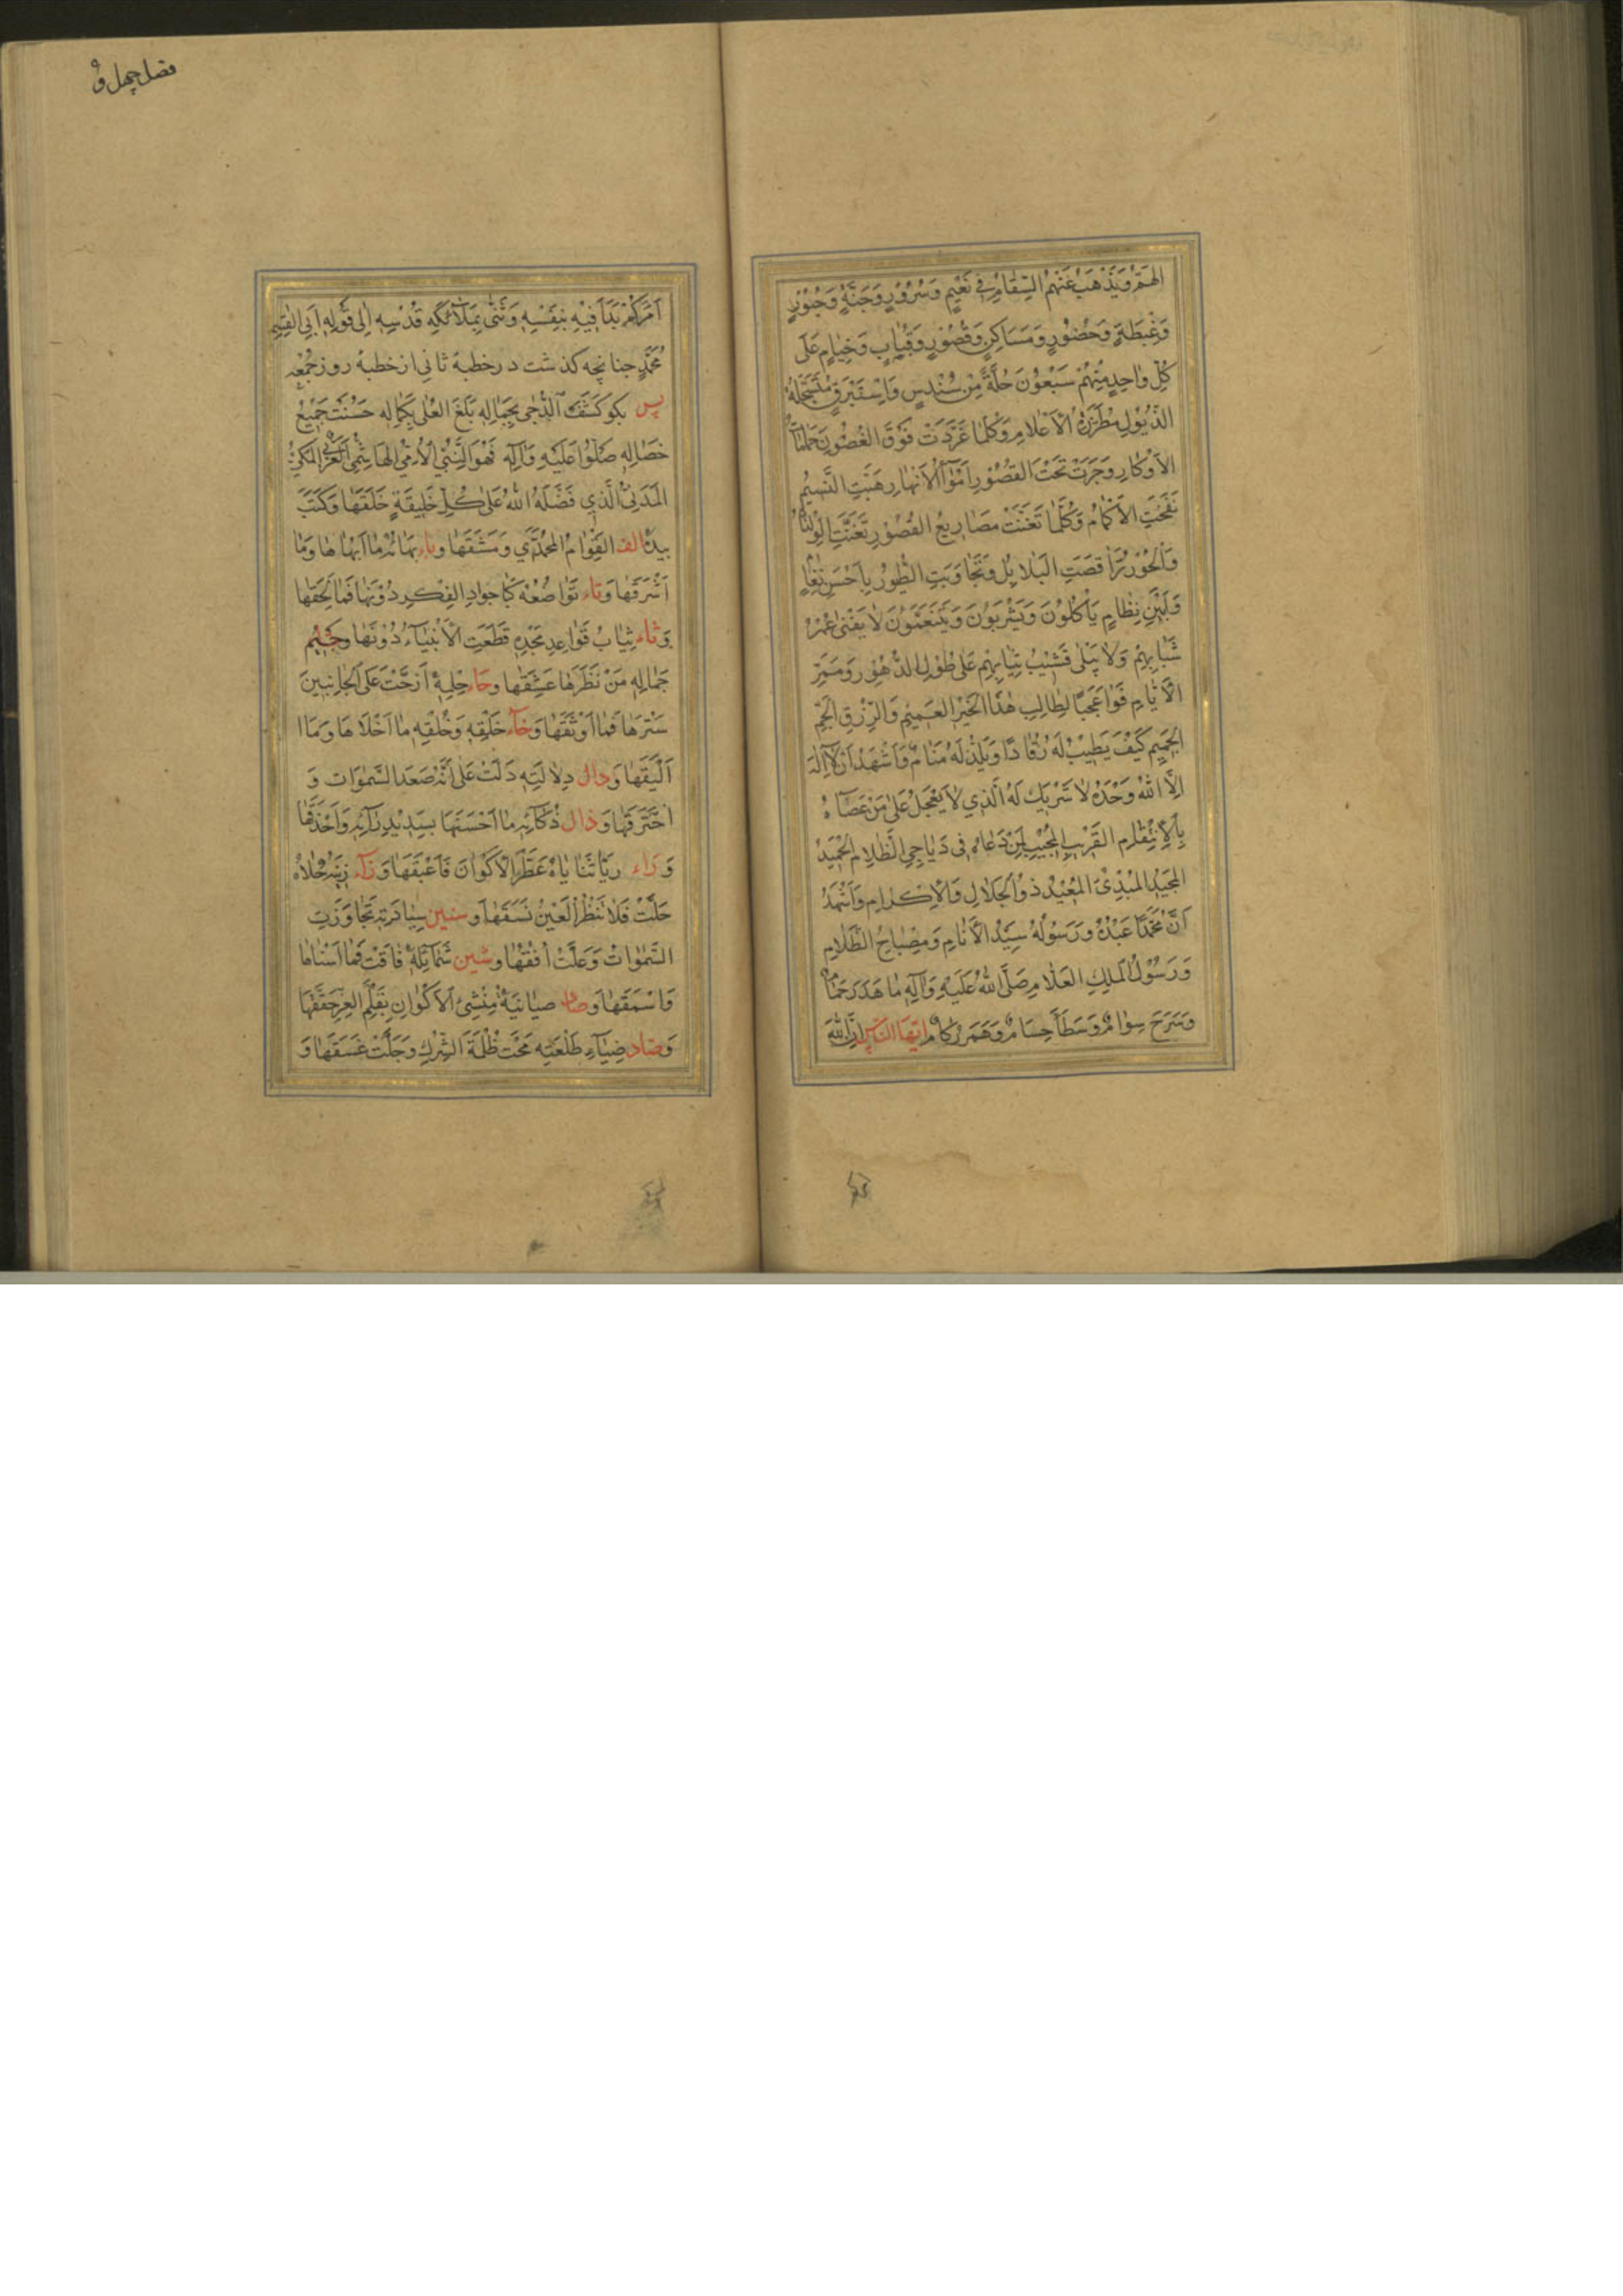 الهمّ ويذهب عنهم السقام في نعيم وسرور وجنة وحبور
وغبطة وحضور ومساكن وقصور وقباب وخيام على
كل واحد منهم سبعون حلة من سندس واستبرق
الذيول مطرزة الاعلام وكلما غرّدت فوق الغصون
الاوكار وجرت تحت القصور امواه الانهار هبّت النسيم
نفحت الاكمام وكلما تغنت مصاريع القصور تغنت الولدان
والحور تراقصت البلابل وتجاوبت الطيور باحسن نغام
وبين نظام يأكلون ويشربون ويتنعمون لا يفنى عمر
شبابهم ولا يبلى قشيب ثيابهم على طول الدهور وممرّ
الايام فواعجبا لطالب هذا الخير العميم والرزق الجمّ
الجميم كيف يطيب له رقاد او يلذ له منام واشهد ان لا اله
الا الله وحده لا شريك له الذي لا يعجل على من عصاه
بالانتقام القريب المجيب لمن دعاه في دياجي الظلام الحميد
المجيد المبدئ المعيد ذو الجلال والاكرام واشهد
ان محمدا عبده ورسوله سيد الانام ومصباح الظلام
ورسول الملك العلام صلى الله عليه وآله ما هدر حمام
وسرح سوام وسطا حسام وهمر ركام ايها الناس ان الله
فصل چهل و
امركم بدأ فيه بنفسه وثنى بملائكة قدسه الى قوله ابي القسم
محمد چنانچه كذشت در خطبهٔ ثاني از خطبهٔ روز جمعه
پس بكو كشف الدجى بجماله بلغ العلى بكماله حسنت جميع
خصاله صلوا عليه وآله فهو النبي الامي الهاشمي العربي المكي
المدني الذي فضله الله على كل خليقة خلقها وكتب
بيده الف القوام المحمدي ومشقها وباء بهائه ما ابهاها وما
اشرقها وتاء تواضعه كبا جواد الفكر دونها فما لحقها
وثاء ثياب قواعد مجده قطعت الانبياء دونها وجيم
جماله من نظرها عشقها وحاء حلية ارخت على الجانبين
سترها فما اوثقها وخاء خلقه وخلقه ما احلاها وما
اليقها ودال دلالته دلت على انه صعد السموات و
اخترقها وذال ذكائه ما احسنها بسديد رأيه واحذقها
وراء ريّا ثناياه عطّر الاكوان فاعبقها وزاء زينة حلاه
حلّت فلا تنظر العين نسقها وسين سيادته تجاوزت
السموات وعلت افقها وشين شمائله فاقت فما اسناها
واسمقها وصاد صيانية منشئ الاكوان بقلم العز حققها
وضاد ضياء طلعته محت ظلمة الشرك وجلت غسقها و